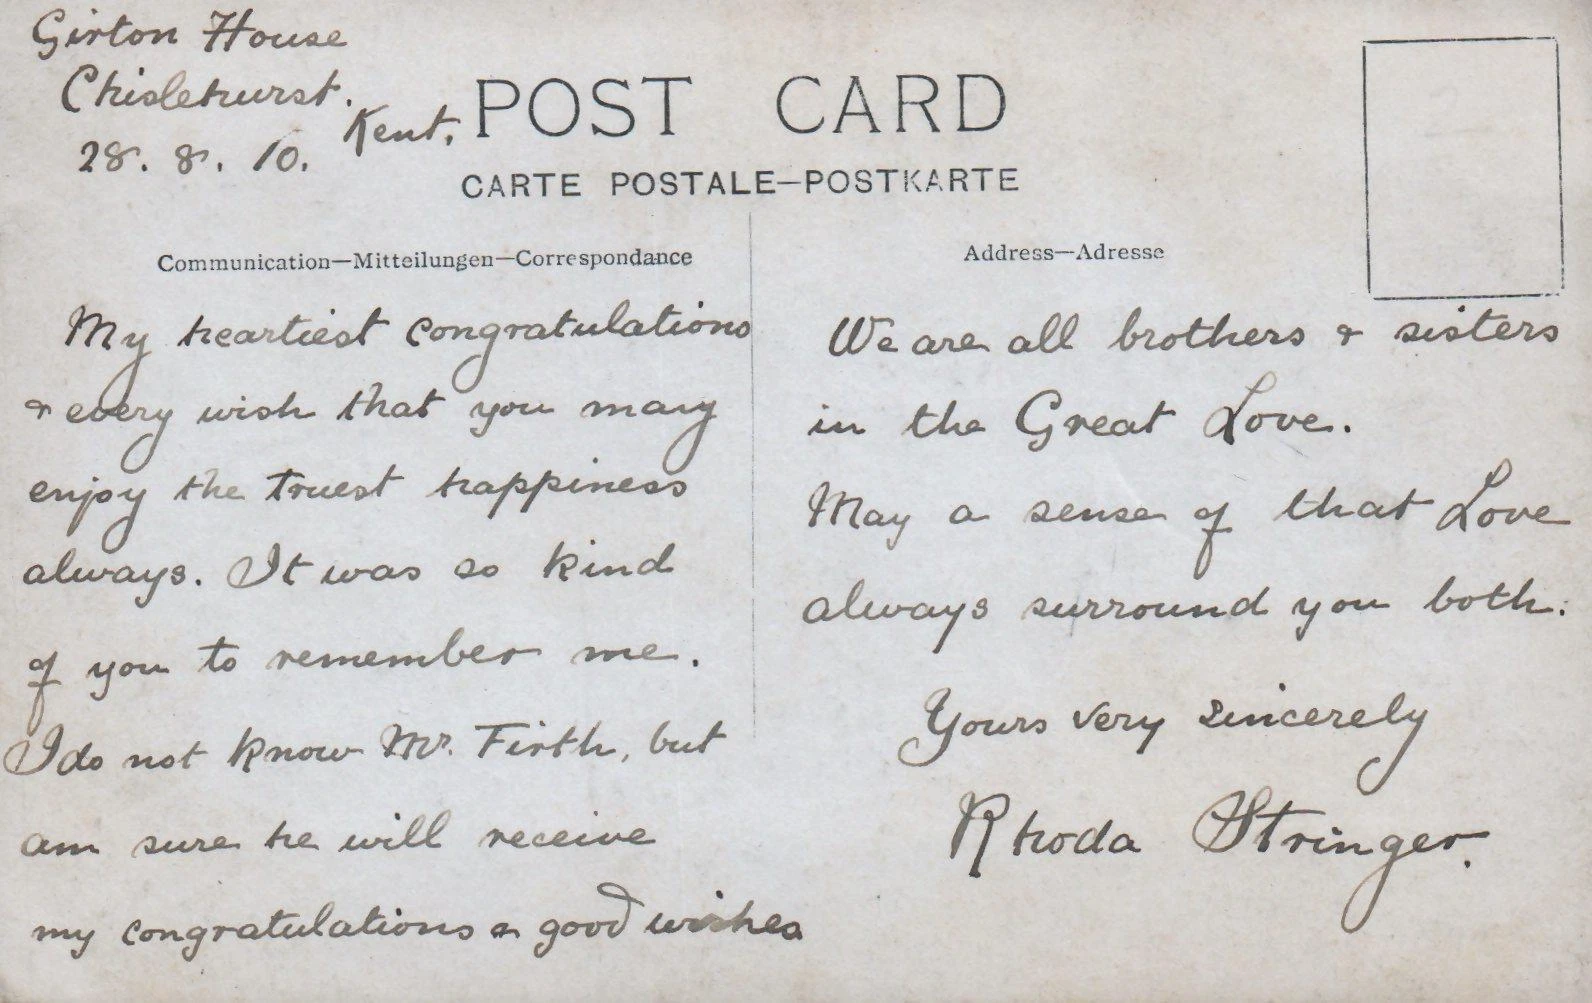 Girton House
Chislehurst.
Kent.
28. 8. 10.
POST CARD
CARTE POSTALE—POSTKARTE
Communication—Mitteilungen—Correspondance
Address—Adresse
My heartiest congratulations
& every wish that you may
enjoy the truest happiness
always. It was so kind
of you to remember me.
I do not know Mr. Firth, but
am sure he will receive
my congratulations & good wishes
We are all brothers & sisters
in the Great Love.
May a sense of that Love
always surround you both.
Yours very sincerely
Rhoda Stringer.